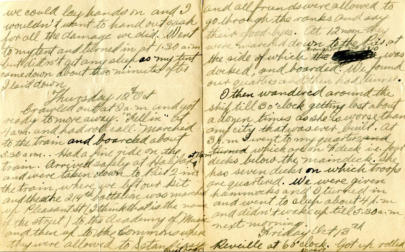 we could lay hands on and I
wouldn't want to hand out cash
for all the damage we did. Went
to my tent and turned in at 1:30 a.m.
but didn't get any sleep as my tent
came down about two minutes after
I laid down.
Thursday 12th Oct
at 2 a.m. and got
ready to move away. "Fell in" by
4 a.m. and had roll call. Marched
to the train and boarded about
5:30 a.m. Had a fine ride on the
train. Arrived safely at Halifax at
and were taken down to Pier 2 in
the train, where we left our kit
and the 214th Battalion was marched
up (I think that is the name
of the street) to the Academy of Music
and then up to the Commons where
they were allowed to
and all friends were allowed to
go through the ranks and say
their good byes. At 12 noon they
were marched down to the Pier at
the side of which the was
docked, and boarded. We found
our quarters and then had dinner.
I then wandered around the
ship till 3 o'clock getting lost about
a dozen times as she is worse than
any city that was ever built. At
3 p.m. I went to my quarters and
turned which are in F deck i.e. four
decks below the main deck. She
has seven decks on which troops
are quartered. We were given
hammocks and I turned in
and went to sleep about 4 p.m.
and didn't wake up till 5:30 a.m.
next morning.
Friday Oct 13th
Reveille at 6 o'clock. Got up rolled